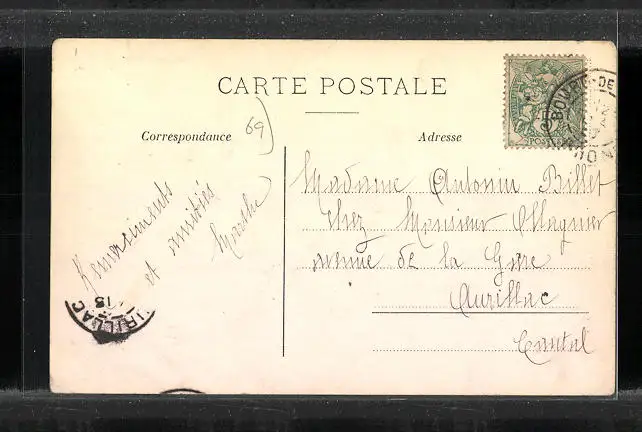 CARTE POSTALE
Correspondance
69
Adresse
Remerciments
et amitiés
Marthe
Madame Antonin Billet
chez Monsieur Magnier
avenue de la Gare
Aurillac
Cantal
BOURG-DE
POSTES
RILLAC